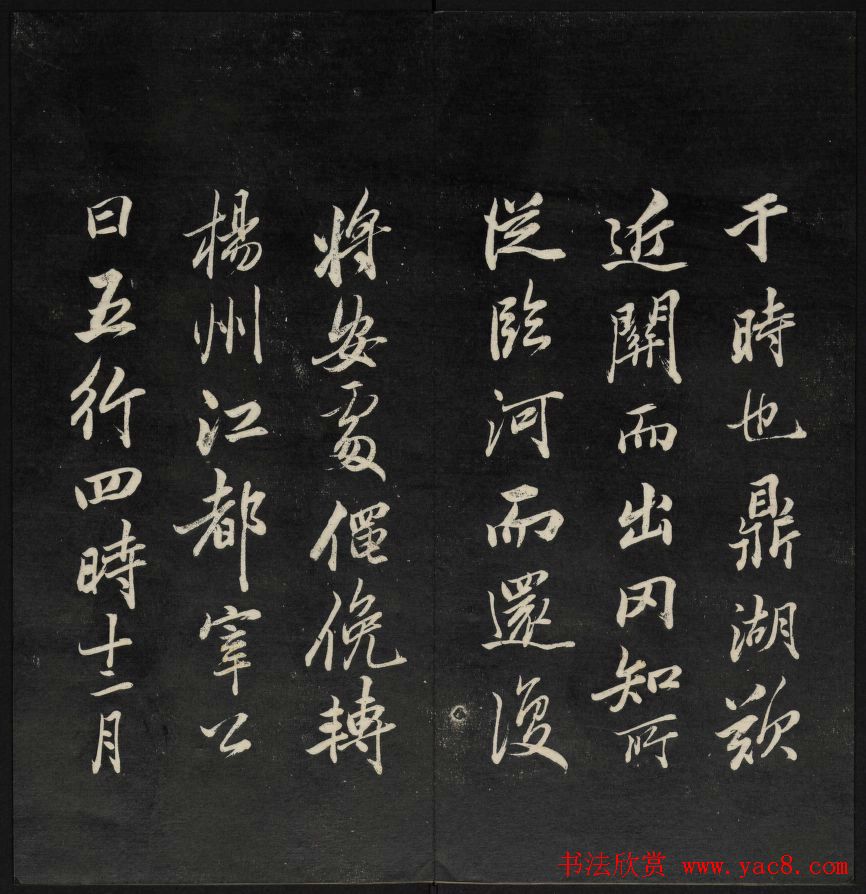 于時也鼎湖欻
近關而出罔知所
從臨河而還復
將安處僶俛轉
楊州江都宰公
曰五行四時十二月
书法欣赏 www.yac8.com